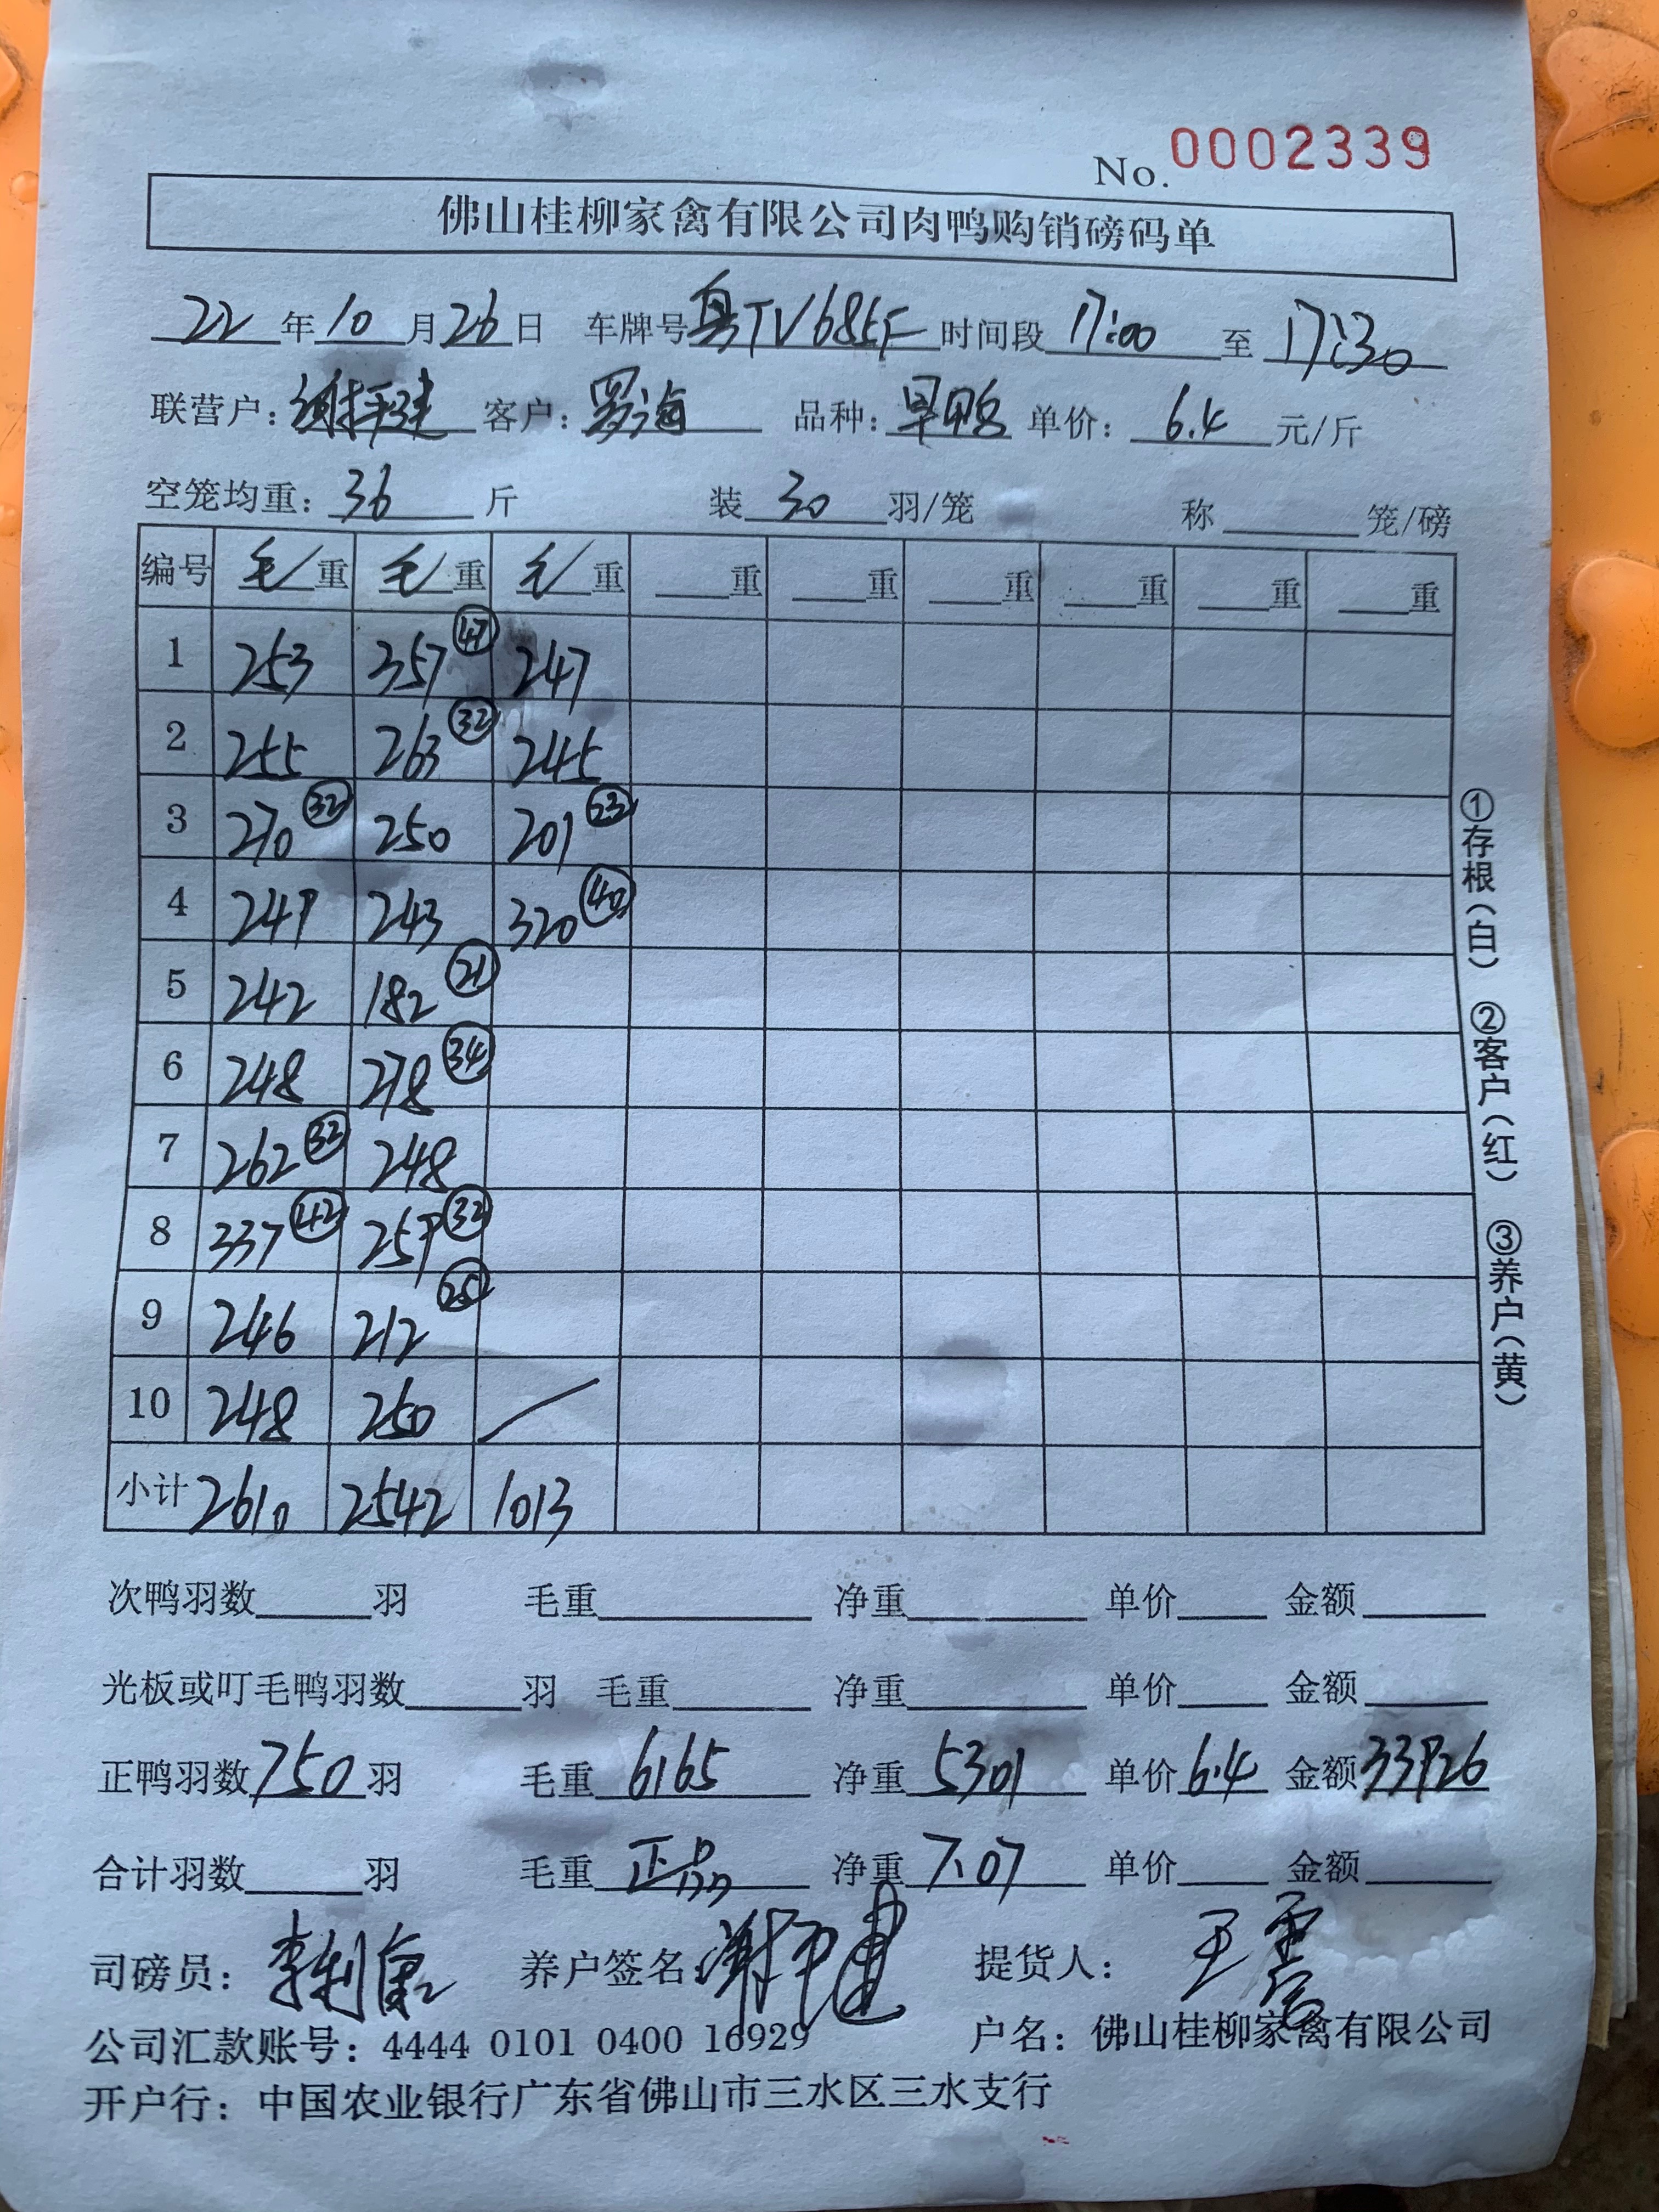 No. 0002339
佛山桂柳家禽有限公司肉鸭购销磅码单
22年10月26日 车牌号粤TV685F 时间段17:00至17:30
联营户：谢平建 客户：罗海 品种：旱鸭 单价：6.4元/斤
空笼均重：36斤 装30羽/笼 称 笼/磅
编号 毛重 毛重 毛重 重 重 重 重 重 重
1 253 357 ㊼ 247
2 255 263 ㉜ 245
3 270 ㉜ 250 201 ㉓
4 249 243 320 ㊵
5 242 182 ㉑
6 248 278 ㉞
7 262 ㉜ 248
8 337 ㊷ 259 ㉜
9 246 212 ㉕
10 248 250
小计 2610 2542 1013
①存根（白） ②客户（红） ③养户（黄）
次鸭羽数 羽 毛重 净重 单价 金额
光板或叮毛鸭羽数 羽 毛重 净重 单价 金额
正鸭羽数750羽 毛重6165 净重5301 单价6.4 金额33926
合计羽数 羽 毛重正品 净重7.07 单价 金额
司磅员：李利 养户签名：谢平建 提货人：王
公司汇款账号：4444 0101 0400 16929 户名：佛山桂柳家禽有限公司
开户行：中国农业银行广东省佛山市三水区三水支行